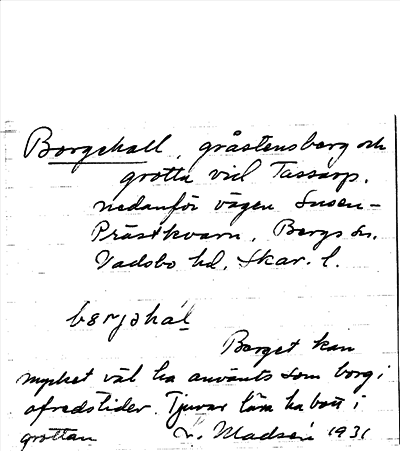 Borgehall, gråstensberg och
grotta vid Tassarp,
nedanför vägen Suoen-
Prästkvarn, Bergs sn.
Vadsbo hd, Skar. l.
Berget kan
mycket väl ha använts som borg i
ofredstider. Tjuvar låra ha bott i
grottan V. Madsén 1931